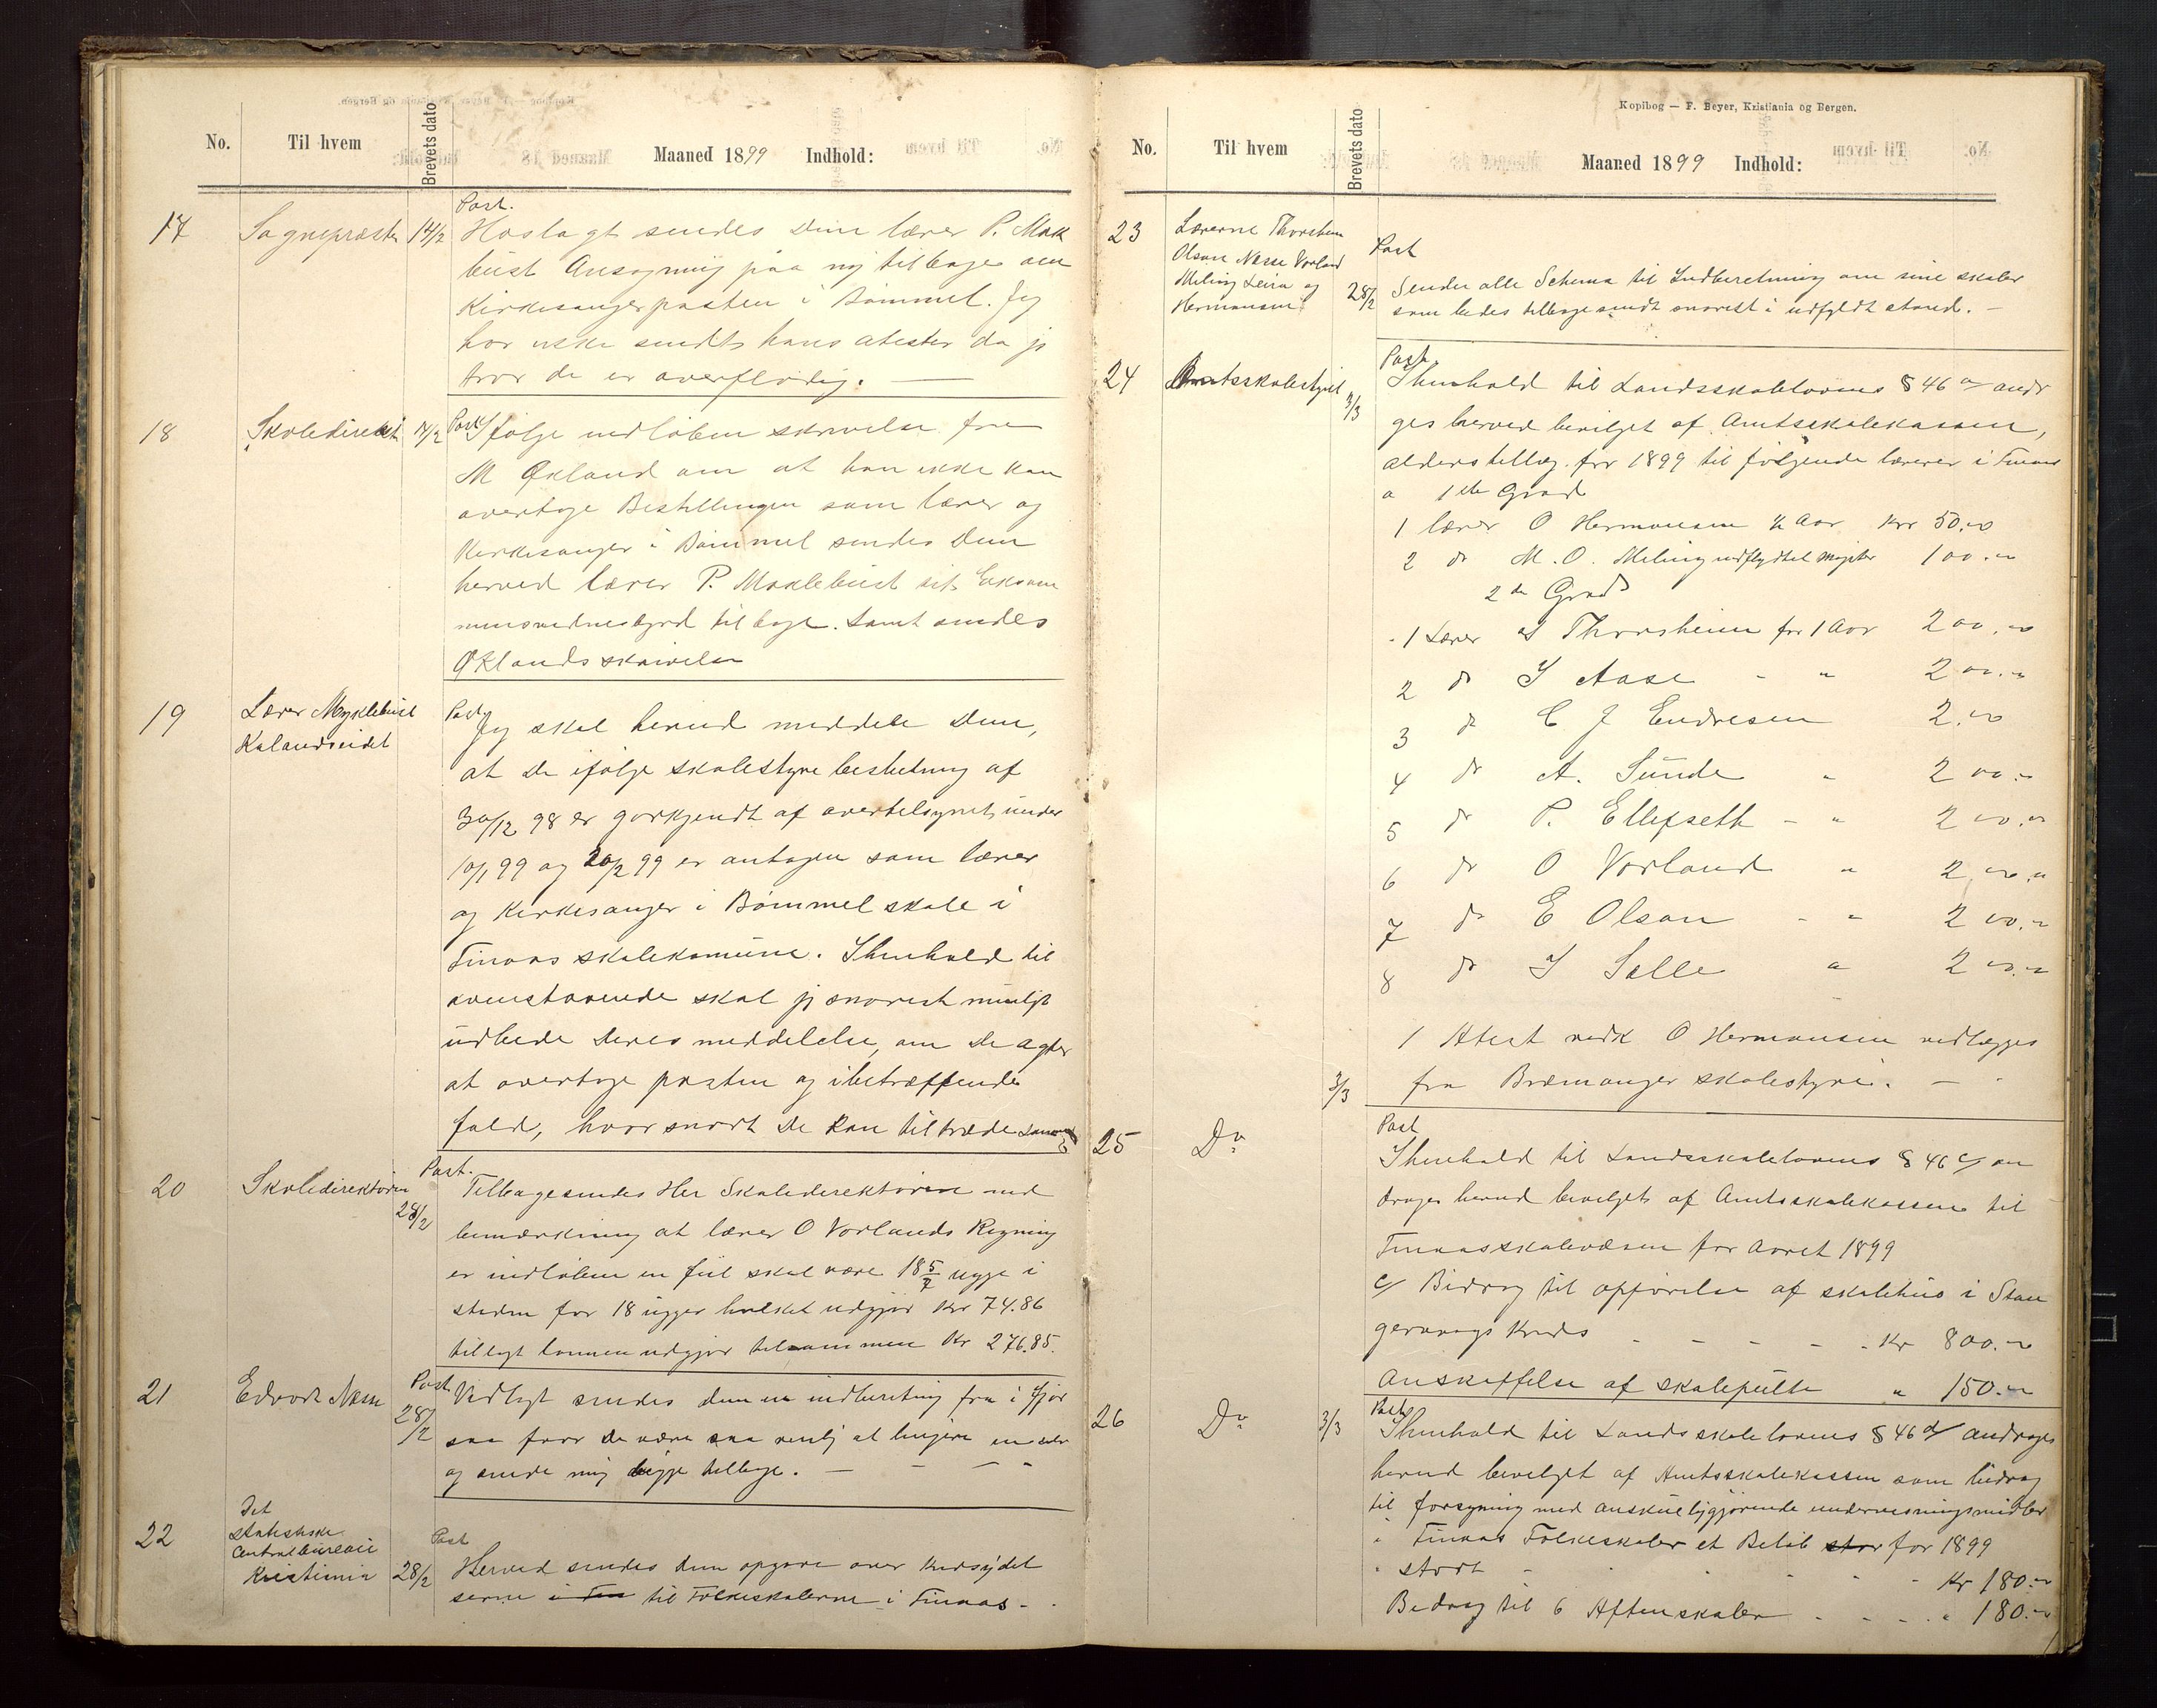 No. Til hvem Brevets dato Maaned 1899 Indhold:
Post.
17 Sognepræsten 14/2 Hoslagt sendes Dem lærer P. Mæk
lebust Ansøgning paa ny tilbage om
Kirkesangerposten i Bømmel. Jeg
har ikke sendt hans atester da jeg
tror de er overflødig. —
18 Skoledirekt 14/2 Post Ifølge indløben skrivelse fra
M Økland om at han ikke kan
overtage Bestillingen som lærer og
Kirkesanger i Bømmel sendes Dem
herved lærer P. Møklebust sit Eksam
mensvidnesbyrd tilbage. Samt sendes
Øklands skrivelse
19 Lærer Myklebust
Kalandseidet
Post Jeg skal herved meddele Dem,
at De ifølge skolestyre beslutning af
30/12 98 er godkjendt af overtilsynet under
10/1 99 og 20/2 99 er antagen som lærer
og Kirkesanger i Bømmel skole i
Finaas skolekomune. I henhold til
ovenstaaende skal jeg snarest muligt
udbede Deres meddelelse, om De agter
at overtage posten og i betræffende
fald, hvor snart De kan tiltræde samme
20 Skoledirektøren 28/2 Post.
Tilbagesendes Her Skoledirektøren med
bemærkning at lærer O Vorlands Regning
er indløben en feil skal være 18 5/7 uge i
steden for 18 uger hvilket udgjør Kr 74.86
tillagt lønnen udgjør tilsammen Kr 276.85.
21 Edvard Næse 28/2 Post Vedlagt sendes dem en indberetning fra i fjor
saa faar De være saa venlig at
og sende mig begge tilbage. —
22 Det
statistiske
Centralbureau
Kristiania 28/2
Post
Herved sendes dem opgave over
serne i Fin til Folkeskolerne i Finaas -
Kopibog — F. Beyer, Kristiania og Bergen.
No. Til hvem Brevets dato Maaned 1899 Indhold:
23 Lærerne Thorsheim
Olsen Næse Vorland
Meling Leira og
Hermansen 28/2
Post
Sender alle Schema til Indberetning om sine skoler
som bedes tilbagesendt snarest i udfyldt stand. —
24 Amtsskolestyret 3/3 Post.
I henhold til Landsskolelovens § 46 a/ andr
ges herved bevilget af Amtsskolekassen,
alderstillæg for 1899 til følgende lærerer i Finaas
a 1ste Grad
1 lærer O Hermansen ½ Aar Kr 50.00
2 do M. O. Meling 100.00
2den Grad
1 Lærer Thorsheim for 1 Aar 200.00
2 do I Aase - " 200.00
3 do C J Endresen 2.00
4 do A. Sunde " 200.-
5 do P. Ellefseth - " 200.00
6 do O Vorland " 200.00
7 do E Olson - " 200.00
8 do I Salle " 200.00
1 Atest vedk O Hermansen vedlægges
3/3 fra Bremanger skolestyre. —
25 Do
Post
I henhold til Landsskolelovens § 46 c/ an
drages herved bevilget af Amtsskolekassen til
Finaas skolevæsen for Aaret 1899
c/ Bidrag til opførelse af skolehus i Stan
gervaags Kreds - - - - - Kr 800.00
Anskaffelse af skolepulte " 150.00
26 Do 3/3 Post
I henhold til Landsskolelovens § 46 d/ andrages
herved bevilget af Amtsskolekassen som bidrag
til forsyning med anskueliggjørende undervisningsmidler
i Finaas Folkeskoler et Beløb stor for 1899
stort - - - - - Kr 180.00
Bidrag til 6 Aftenskoler - - - - " 180.00